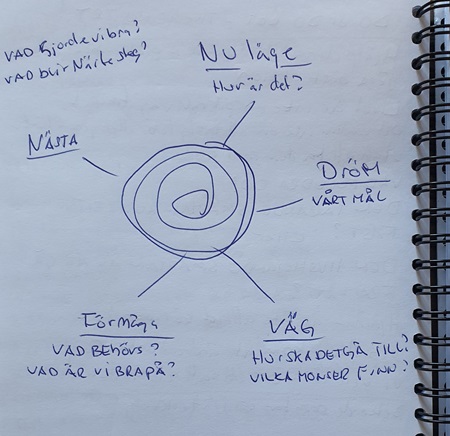 VAD gjorde vi bra?
VAD blir Nästa steg?
NU läge
Hur är det?
NÄSTA
DRÖM
VÅRT MÅL
Förmåga
VAD BEHÖVS?
VAD ÄR VI BRA PÅ?
VÄG
HUR SKA DET GÅ TILL?
VILKA FINN?